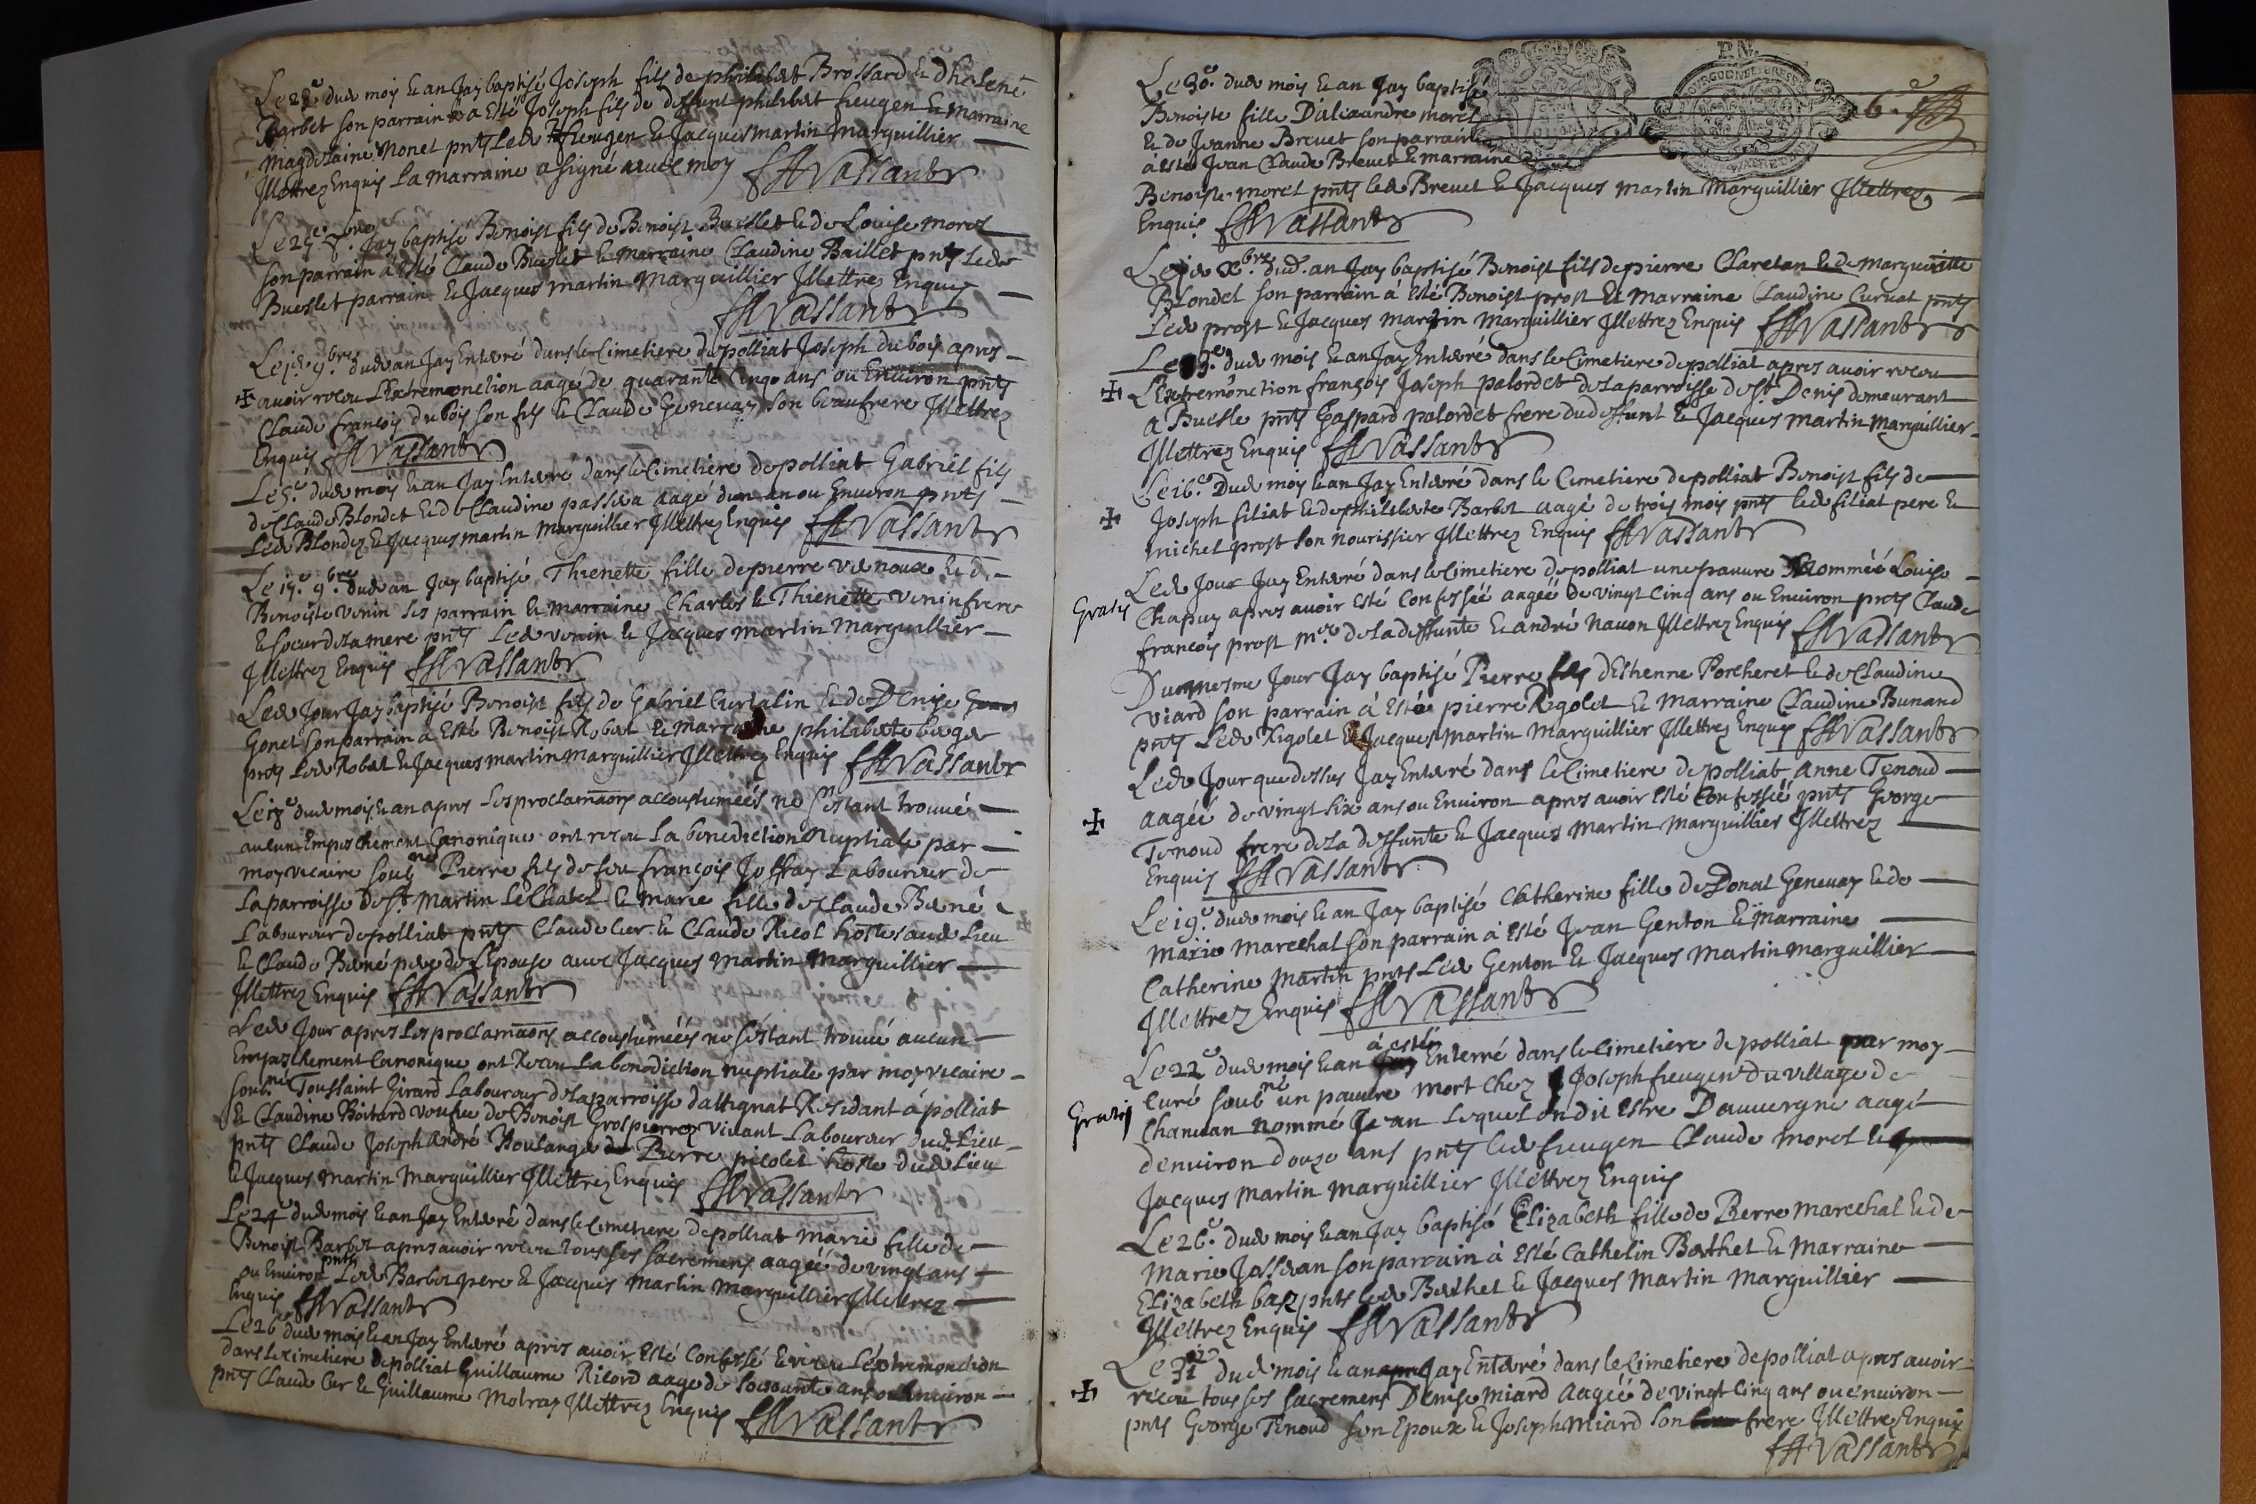 Le 22e dud mois & an Jay baptisé Joseph fils de philibert Brossard & dhelene
Barbet son parrain a esté Joseph fils de deffunt philibert fieugen & marraine
magdelaine Monet pnts led fieugen & Jacques martin marguillier
Illettrez Enquis la marraine a signé avec moy Vassant
Le 29e 8bre Jay baptisé Benoist fils de Benoist Buestet & de Louise morel
son parrain à esté Claude Buestet & marraine Claudine Baillet pnts led
Buestet parrain & Jacques martin marguillier Illettrez Enquis
Vassant
Le 1er 9bre dud an Jay Enterré dans le Cimetiere de polliat Joseph dubois apres
avoir receu L'Extremonction aagé de quarante Cinq ans ou Environ pnts
Claude françois dubois son fils & Claude Genevay son beaufrere Illettrez
Enquis Vassant
Le 5e dud mois & an Jay Enterré dans le Cimetiere de polliat Gabriel fils
de Claude Blondet & de Claudine passera aagé dun an ou Environ pnts
Led Blondez & Jacques martin Marguillier Illettrez Enquis Vassant
Le 15e 9bre dud an Jay baptisé Thienette fille de pierre vernoux & de
Benoiste Venin ses parrain & marraine Charles & Thienette venin frere
& soeur de la mere pnts Led venin & Jacques martin Marguillier
Illettrez Enquis Vassant
Led Jour Jay baptisé Benoist fils de Gabriel Curtalin & de Denise
Gonet son parrain à Esté Benoist Robat & marraine philiberte
pnts Led Robat & Jacques martin marguillier Illettrez Enquis Vassant
Le 18e dud mois & an apres les proclamaons accoustumeés ne sestant trouvé
aucun Empeschement Canonique ont receu La benediction Nuptiale par
moy vicaire soubne Pierre fils de feu françois Joffray Laboureur de
La parroisse de St Martin Le Chatel & Marie fille de Claude Berné
Laboureur de polliat pnts Claude Cer & Claude Ricol hostes aud Lieu
& Claude Berné pere de Lepouse avec Jacques Martin Marguillier
Illettrez Enquis Vassant
Led Jour apres les proclamaons accoustumeés ne séstant trouvé aucun
Empeschement Canonique ont Receu La benediction nuptiale par moy vicaire
soubne Toussaint Girard Laboureur de la parroisse dattignat Residant á polliat
& Claudine Boitard veufve de Benoist Grospierrez vivant Laboureur dud Lieu
pnts Claude Joseph André Boulanger Pierre picolet hoste dud Lieu
& Jacques Martin Marguillier Illettrez Enquis Vassant
Le 24e dud mois & an Jay Enterré dans le Cimetiere de polliat Marie fille de
Benoist Barbet apres avoir receu tous ses sacremens aagée de vingt ans
ou Environ pnts Led Barbet pere & Jacques Martin Marguillier Illettrez
Enquis Vassant
Le 26e dud mois & an Jay Enterré apres avoir Esté Confessé & receu L'extremonction
dans le Cimetiere de polliat Guillaume Ricord aagé de soixante ans ou Environ
pnts Claude Cer & Guillaume Motray Illettrez Enquis Vassant
P.N.
6e
Le 30e dud mois & an Jay baptisé
Benoiste fille D'alexandre morel
& de Jeanne Brevet son parrain
à esté Jean Claude Brevet & marraine
Benoiste morel pnts led Brevet & Jacques martin Marguillier Illettrez
Enquis Vassant
Le Xbre dud an Jay baptisé Benoist fils de pierre Claretan & de Marguerite
Blondel son parrain à esté Benoist prost & Marraine Claudine Curvat pnts
Led prost & Jacques martin Marguillier Illettrez Enquis Vassant
Le 9e dud mois & an Jay Enterré dans le Cimetiere de polliat apres avoir receu
L'Extremonction françois Joseph palordet de la parroisse de St Denis demeurant
a Buesle pnts Gaspard palordet frere du deffunt & Jacques martin Marguillier
Illettrez Enquis Vassant
Le 16e Dud mois & an Jay Enterré dans le Cimetiere de polliat Benoist fils de
Joseph filiat & de philiberte Barbet aagé de trois mois pnts led filiat pere &
michel prost son nourissier Illettrez Enquis Vassant
Led Jour Jay Enterré dans le Cimetiere de polliat une pauvre Nommée Louise
Gratis Chapuy apres avoir Esté Confessée aagée de vingt Cinq ans ou Environ pnts Claude
françois prost mr de la deffunte & andré Navon Illettrez Enquis Vassant
Du mesme Jour Jay baptisé Pierre fils d'Ethienne Porcheret & de Claudine
Viard son parrain à Esté pierre Rigolet & marraine Claudine Bunand
pnts Led Rigolet & Jacques Martin Marguillier Illettrez Enquis Vassant
Led Jour que dessus Jay Enterré dans le Cimetiere de polliat Anne Tenoud
aagée de vingt six ans ou Environ apres avoir Esté Confessée pnts George
Tenoud frere de la deffunte & Jacques Martin Marguillier Illettrez
Enquis Vassant
Le 19e dud mois & an Jay baptisé Catherine fille de Donat Genevay & de
Marie Marechal son parrain à Esté Jean Genton & marraine
Catherine Martin pnts Led Genton & Jacques Martin marguillier
Illettrez Enquis Vassant
Le 22e dud mois & an à esté Enterré dans le Cimetiere de polliat par moy
Curé soubne un pauvre mort chez Joseph fieugen du village de
Gratis Chanvan nommé Jean Lequel on dit Estre Dauvergne aagé
denviron douze ans pnts led fieugen Claude morel &
Jacques Martin Marguillier Illettrez Enquis
Le 26e dud mois & an Jay baptisé Elizabeth fille de Pierre marechal & de
Marie Josseran son parrain à Esté Cathelin Berthet & Marraine
Elizabeth bas pnts led Berthet & Jacques Martin Marguillier
Illettrez Enquis Vassant
Le 31e dud mois & an Jay Enterré dans le Cimetiere de polliat apres avoir
receu tous ses sacremens Denise Miard aagée de vingt Cinq ans ou environ
pnts George Tenoud son Epoux & Joseph Miard son frere Illettrez Enquis
Vassant